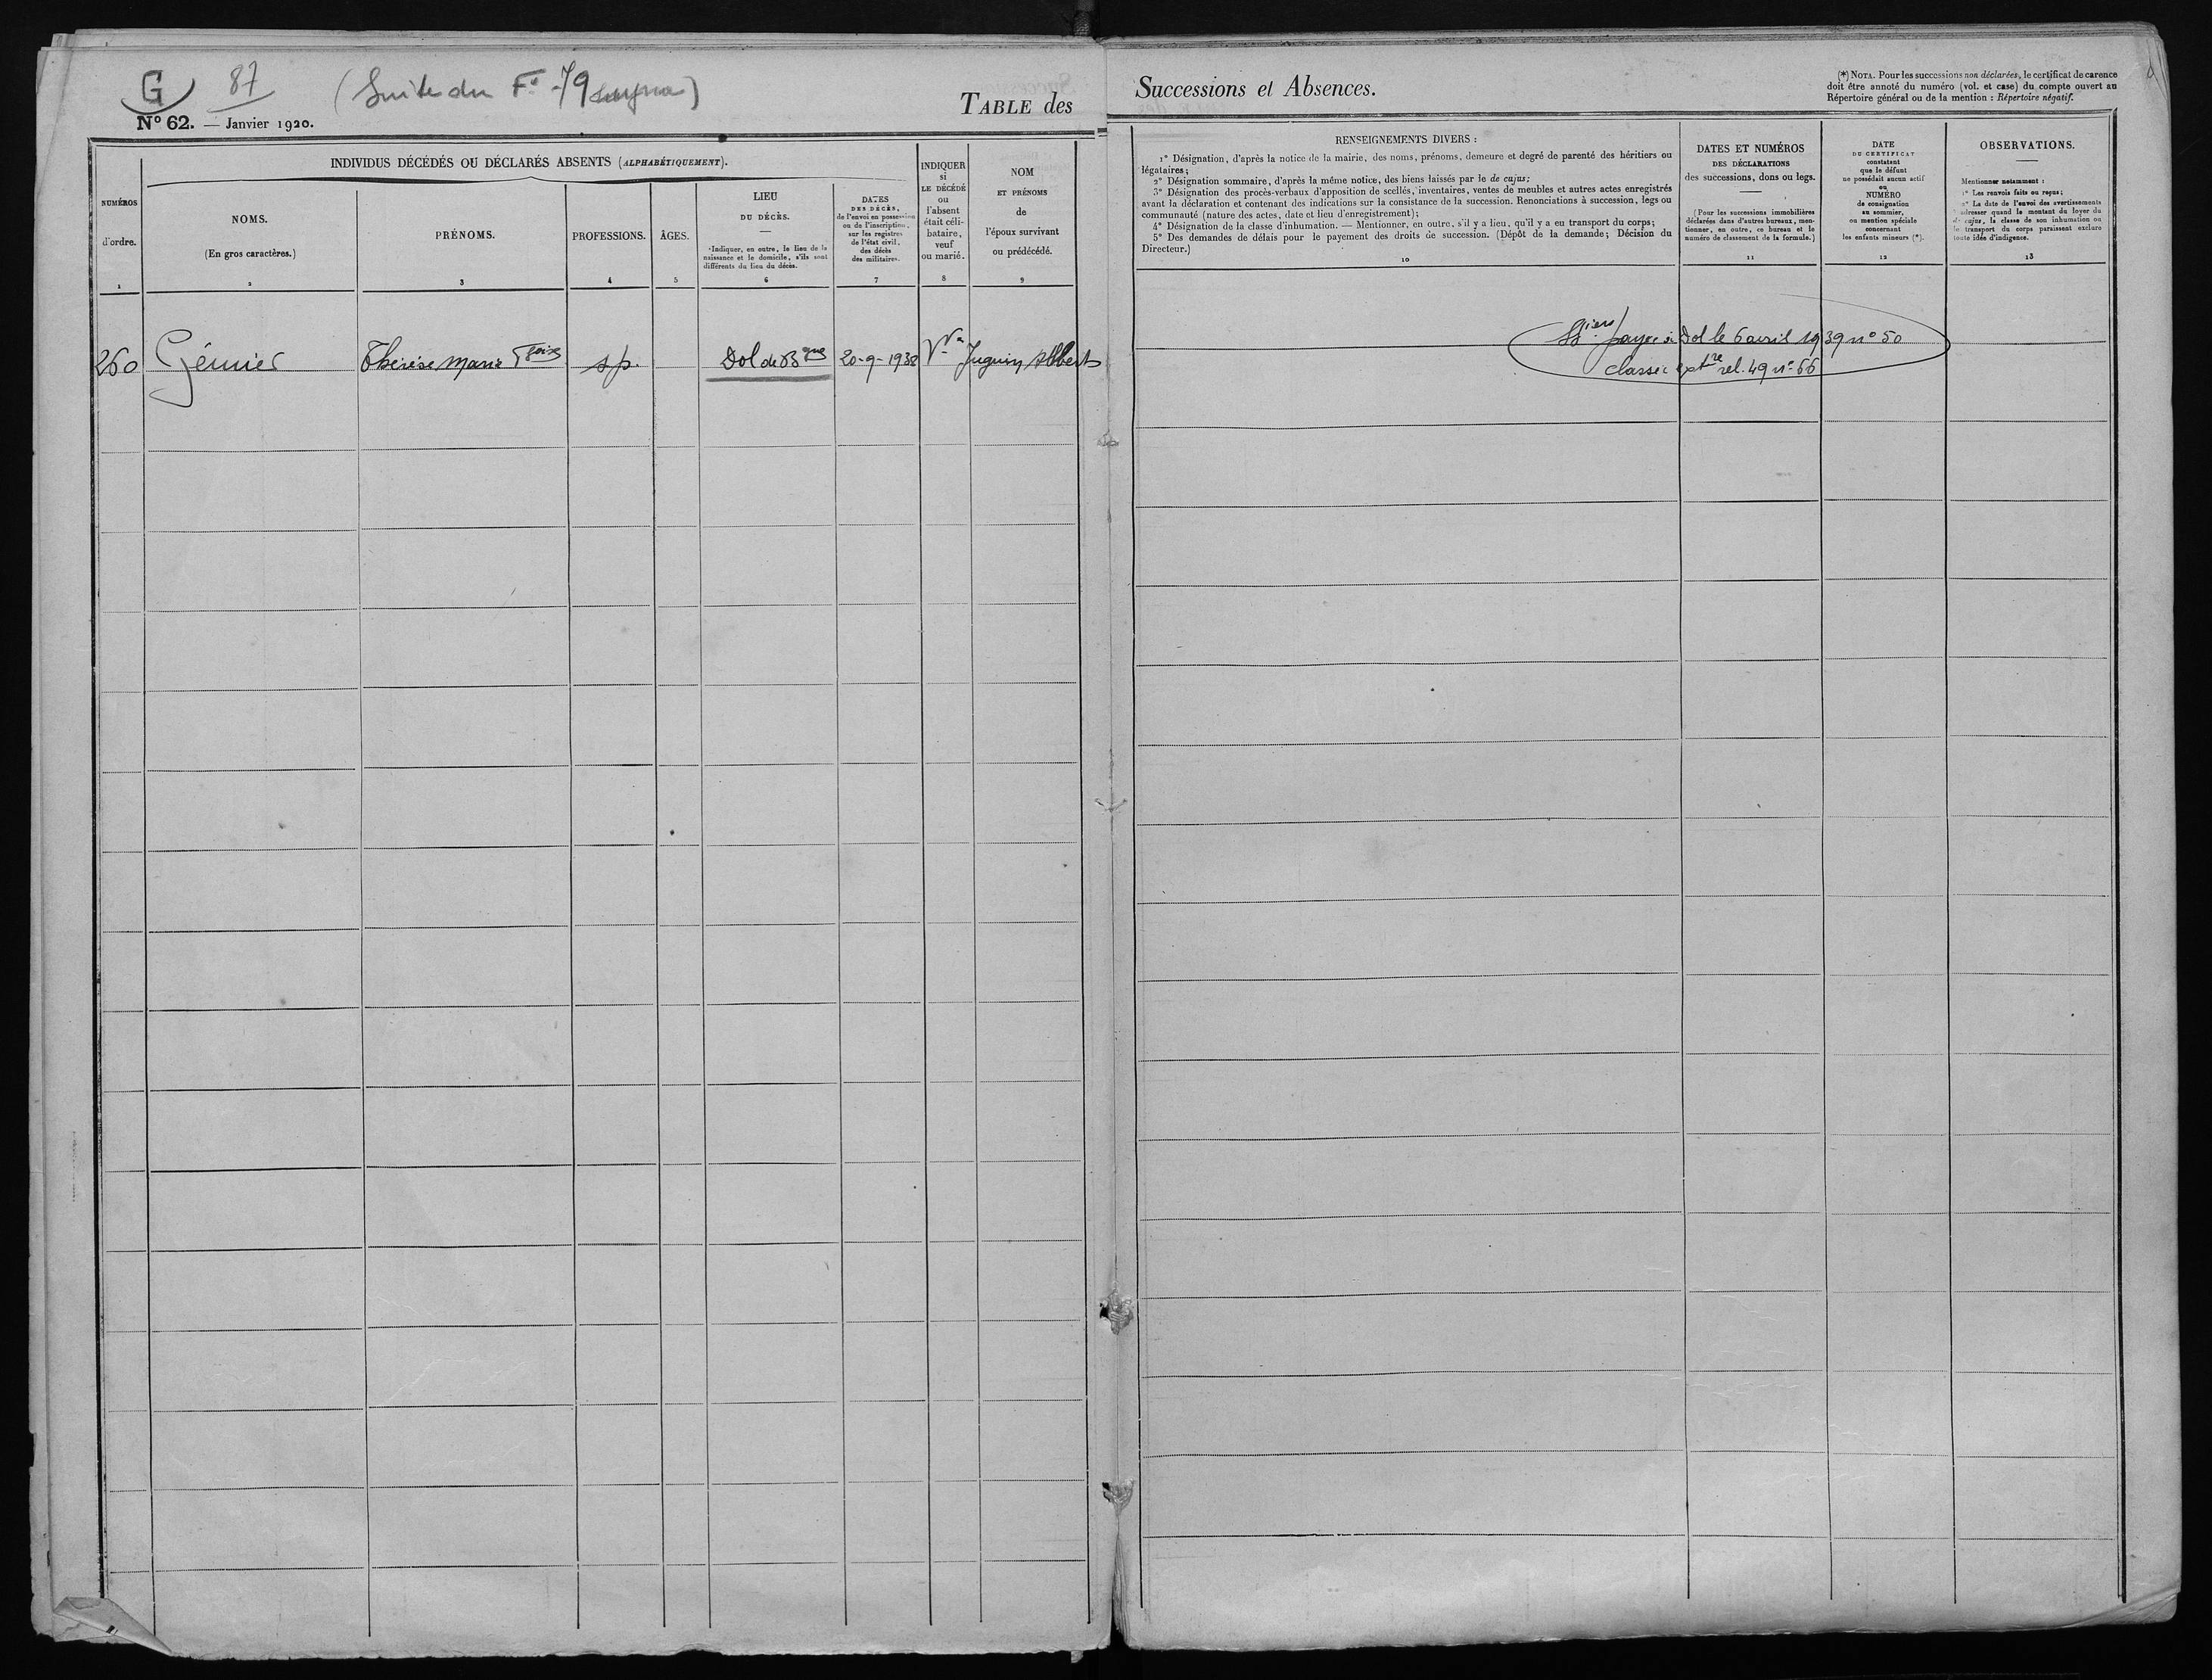 G 87 (Suite du F° 79
N° 62. — Janvier 1920.
TABLE des
Successions et Absences.
(*) NOTA. Pour les successions non déclarées, le certificat de carence
doit être annoté du numéro (vol. et case) du compte ouvert au
Répertoire général ou de la mention : Répertoire négatif.
NUMÉROS
d'ordre.
1
INDIVIDUS DÉCÉDÉS OU DÉCLARÉS ABSENTS (ALPHABÉTIQUEMENT).
NOMS.
(En gros caractères.)
2
PRÉNOMS.
3
PROFESSIONS.
4
ÂGES.
5
LIEU
DU DÉCÈS.
—
Indiquer, en outre, le lieu de la
naissance et le domicile, s'ils sont
différents du lieu du décès.
6
DATES
DES DÉCÈS,
de l'envoi en possession
ou de l'inscription,
sur les registres
de l'état civil,
des décès
des militaires.
7
INDIQUER
si
LE DÉCÉDÉ
ou
l'absent
était céli-
bataire,
veuf
ou marié.
8
NOM
ET PRÉNOMS
de
l'époux survivant
ou prédécédé.
9
RENSEIGNEMENTS DIVERS :
1° Désignation, d'après la notice de la mairie, des noms, prénoms, demeure et degré de parenté des héritiers ou
légataires;
2° Désignation sommaire, d'après la même notice, des biens laissés par le de cujus;
3° Désignation des procès-verbaux d'apposition de scellés, inventaires, ventes de meubles et autres actes enregistrés
avant la déclaration et contenant des indications sur la consistance de la succession. Renonciations à succession, legs ou
communauté (nature des actes, date et lieu d'enregistrement);
4° Désignation de la classe d'inhumation. — Mentionner, en outre, s'il y a lieu, qu'il y a eu transport du corps;
5° Des demandes de délais pour le payement des droits de succession. (Dépôt de la demande; Décision du
Directeur.)
10
DATES ET NUMÉROS
DES DÉCLARATIONS
des successions, dons ou legs.
—
(Pour les successions immobilières
déclarées dans d'autres bureaux, men-
tionner, en outre, ce bureau et le
numéro de classement de la formule.)
11
DATE
DU CERTIFICAT
constatant
que le défunt
ne possédait aucun actif
ou
NUMÉRO
de consignation
au sommier,
ou mention spéciale
concernant
les enfants mineurs (*).
12
OBSERVATIONS.
—
Mentionner notamment :
1° Les renvois faits ou reçus;
2° La date de l'envoi des avertissements
à adresser quand le montant du loyer du
de cujus, la classe de son inhumation ou
le transport du corps paraissent exclure
toute idée d'indigence.
13
260 Génuier Thérèse Marie Fçoise s.p. Dol de Bgne 20-9-1938 Vve Juguin Albert
payée à Dol le 6 avril 1939 n° 50
classée extre rel. 49 n° 66